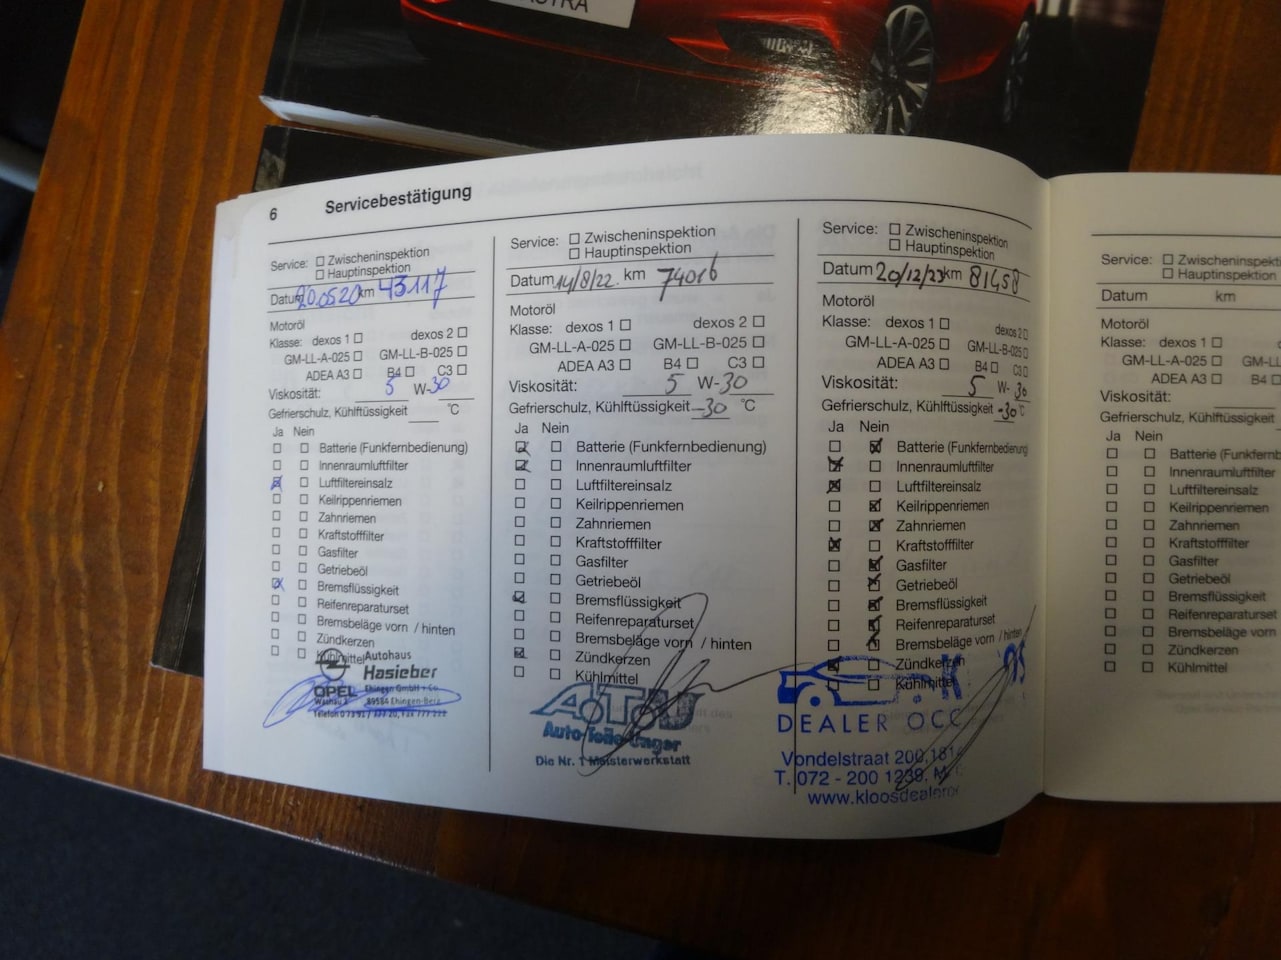 ASTRA
6 Servicebestätigung
Service: Zwischeninspektion
Hauptinspektion
Datum 20.0520 km 43117
Motoröl
Klasse: dexos 1 dexos 2
GM-LL-A-025 GM-LL-B-025
ADEA A3 B4 C3
Viskosität: 5 W-30
Gefrierschulz, Kühlftüssigkeit °C
Ja Nein
Batterie (Funkfernbedienung)
Innenraumluftfilter
Luftfiltereinsalz
Keilrippenriemen
Zahnriemen
Kraftstofffilter
Gasfilter
Getriebeöl
Bremsflüssigkeit
Reifenreparaturset
Bremsbeläge vorn / hinten
Zündkerzen
Kühlmittel
Autohaus
Hasieber
OPEL
Ehingen GmbH + Co.
89584 Ehingen-Berg
Service: Zwischeninspektion
Hauptinspektion
Datum 14/8/22. km 74016
Motoröl
Klasse: dexos 1 dexos 2
GM-LL-A-025 GM-LL-B-025
ADEA A3 B4 C3
Viskosität: 5 W-30
Gefrierschulz, Kühlftüssigkeit -30 °C
Ja Nein
Batterie (Funkfernbedienung)
Innenraumluftfilter
Luftfiltereinsalz
Keilrippenriemen
Zahnriemen
Kraftstofffilter
Gasfilter
Getriebeöl
Bremsflüssigkeit
Reifenreparaturset
Bremsbeläge vorn / hinten
Zündkerzen
Kühlmittel
ATU
Auto-Teile-Unger
Die Nr. 1 Meisterwerkstatt
Service: Zwischeninspektion
Hauptinspektion
Datum 20/12/23 km 81458
Motoröl
Klasse: dexos 1 dexos 2
GM-LL-A-025 GM-LL-B-025
ADEA A3 B4 C3
Viskosität: 5 W-30
Gefrierschulz, Kühlftüssigkeit -30 °C
Ja Nein
Batterie (Funkfernbedienung)
Innenraumluftfilter
Luftfiltereinsalz
Keilrippenriemen
Zahnriemen
Kraftstofffilter
Gasfilter
Getriebeöl
Bremsflüssigkeit
Reifenreparaturset
Bremsbeläge vorn / hinten
Zündkerzen
Kühlmittel
DEALER OCC
Vondelstraat 200, 181
T. 072 - 200 1239. M.
www.kloosdealero
Service: Zwischeninsp
Hauptinspektion
Datum km
Motoröl
Klasse: dexos 1
GM-LL-A-025 GM-L
ADEA A3
Viskosität:
Gefrierschulz, Kühlftüssigkeit
Ja Nein
Batterie (Funkfernb
Innenraumluftfilter
Luftfiltereinsalz
Keilrippenriemen
Zahnriemen
Kraftstofffilter
Gasfilter
Getriebeöl
Bremsflüssigkeit
Reifenreparaturset
Bremsbeläge vorn
Zündkerzen
Kühlmittel